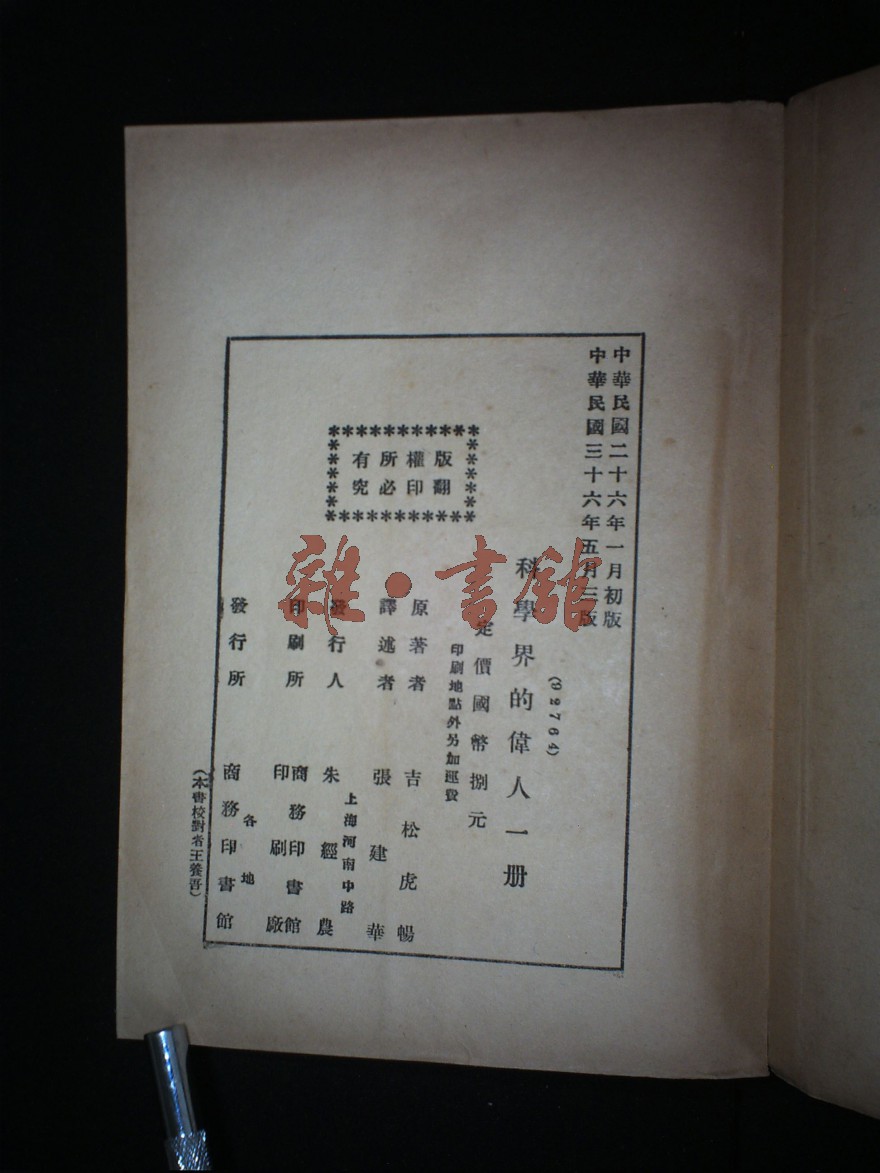 中華民國二十六年一月初版
中華民國三十六年五月三版
(92764)
科學界的偉人一册
定價國幣捌元
印刷地點外另加運費
版權所有
翻印必究
原著者 吉松虎暢
譯述者 張建華
上海河南中路
發行人 朱經農
印刷所 商務印書館印刷廠
發行所 各地商務印書館
(本書校對者王養吾)
雜·書館